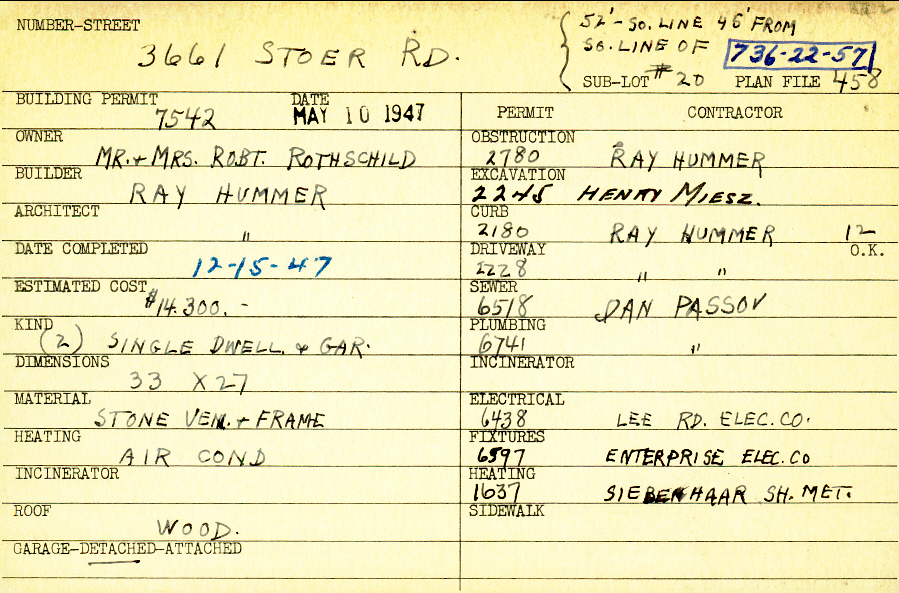 NUMBER-STREET
3661 STOER RD.
52'- SO. LINE 46' FROM
SO. LINE OF
736-22-57
SUB-LOT #20 PLAN FILE 458
BUILDING PERMIT DATE
7542 MAY 10 1947
OWNER
MR. + MRS. ROBT. ROTHSCHILD
BUILDER
RAY HUMMER
ARCHITECT
"
DATE COMPLETED
12-15-47
ESTIMATED COST
$14.300.-
KIND
(2) SINGLE DWELL. & GAR.
DIMENSIONS
33 X 27
MATERIAL
STONE VEN. + FRAME
HEATING
AIR COND
INCINERATOR
ROOF
WOOD.
GARAGE-DETACHED-ATTACHED
PERMIT CONTRACTOR
OBSTRUCTION
2780 RAY HUMMER
EXCAVATION
2245 HENRY MIESZ.
CURB
2180 RAY HUMMER 12
DRIVEWAY O.K.
2228 " "
SEWER
6518 DAN PASSOV
PLUMBING
6741 "
INCINERATOR
ELECTRICAL
6438 LEE RD. ELEC. CO.
FIXTURES
6597 ENTERPRISE ELEC. CO
HEATING
1637 SIEBENHAAR SH. MET.
SIDEWALK